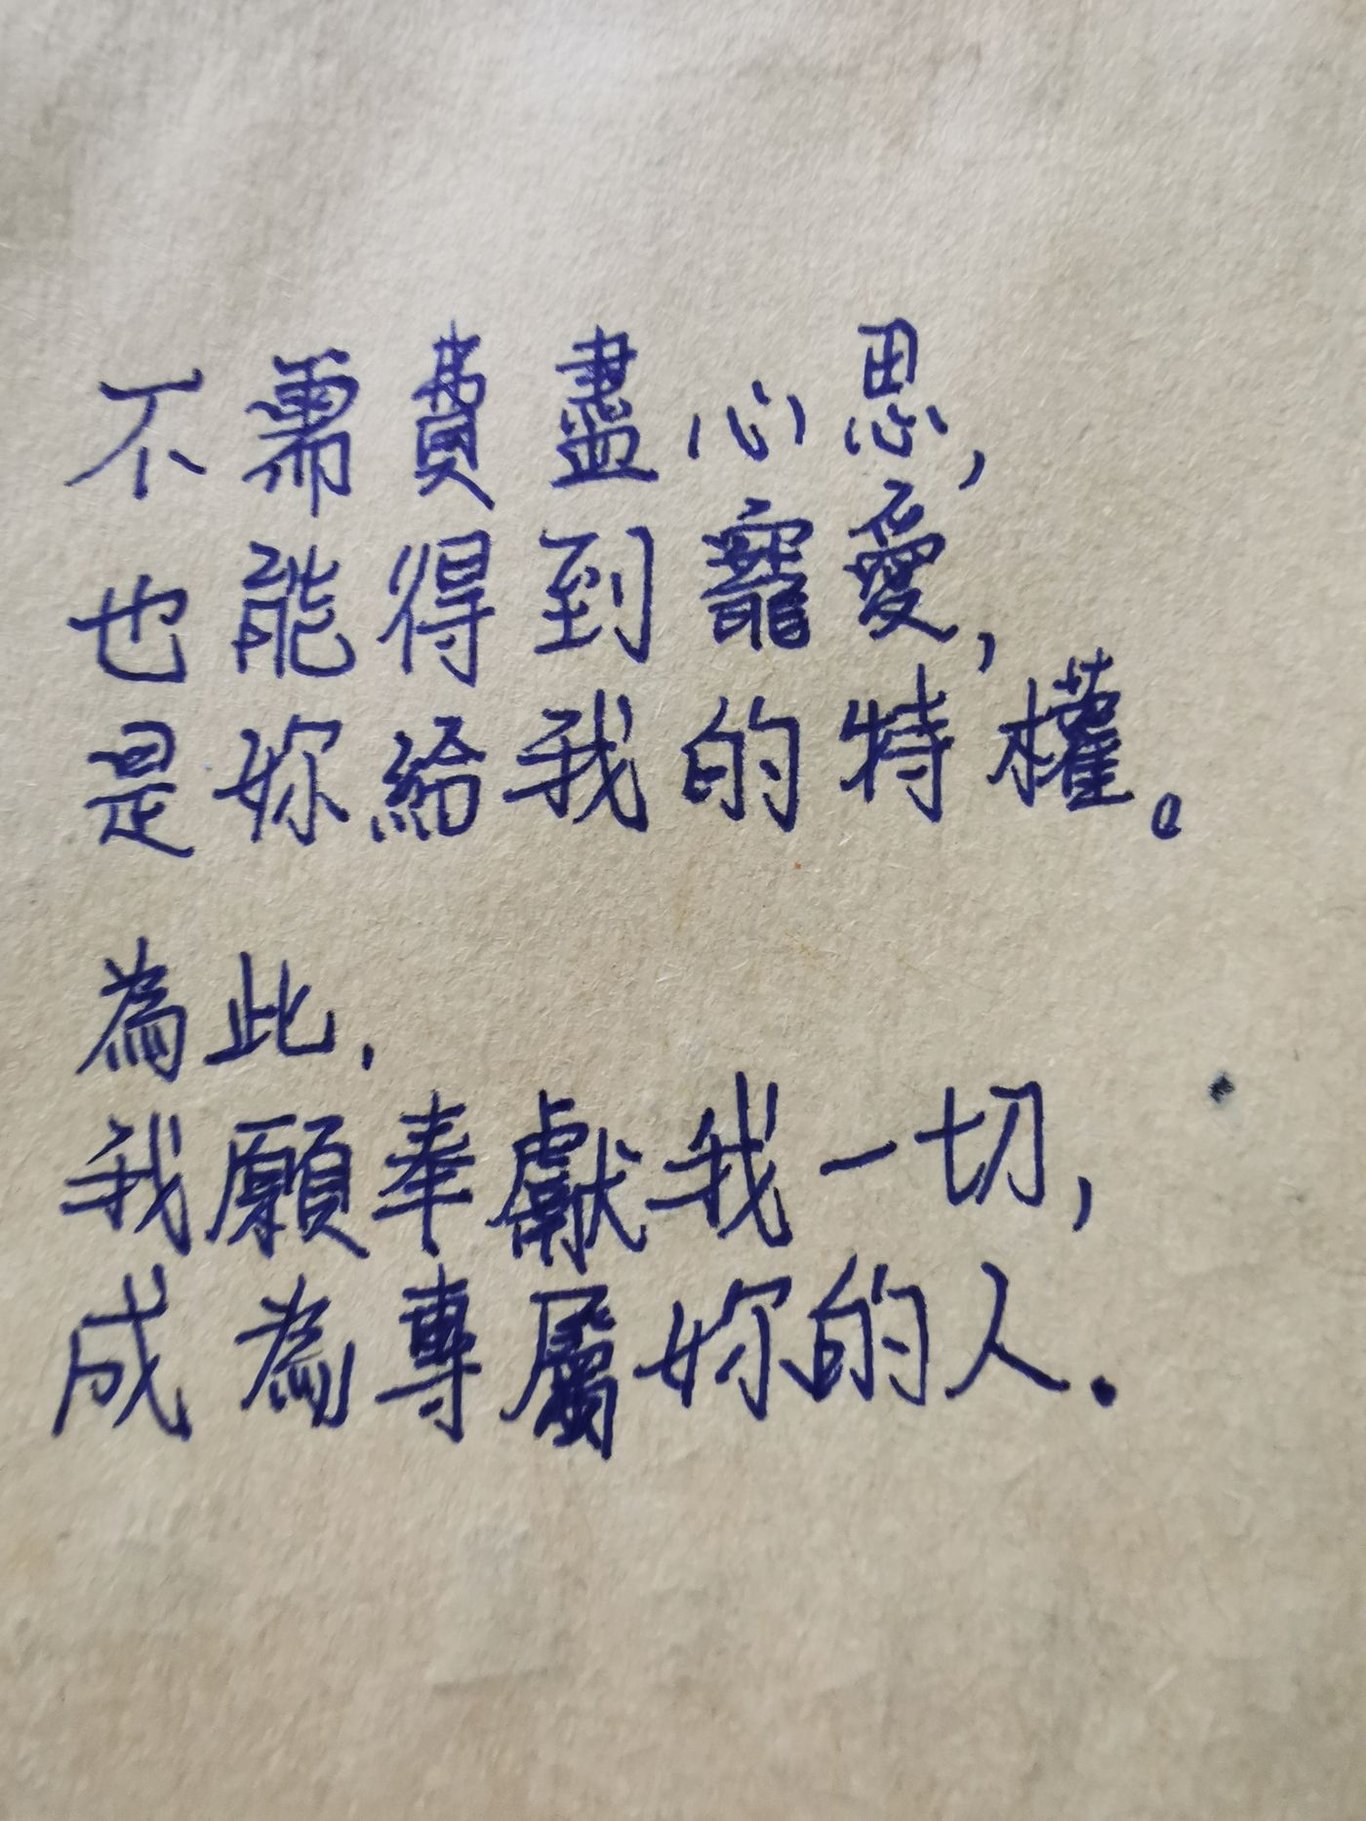 不需費盡心思,
也能得到寵愛,
是妳給我的特權。
為此,
我願奉獻我一切,
成為專屬妳的人.